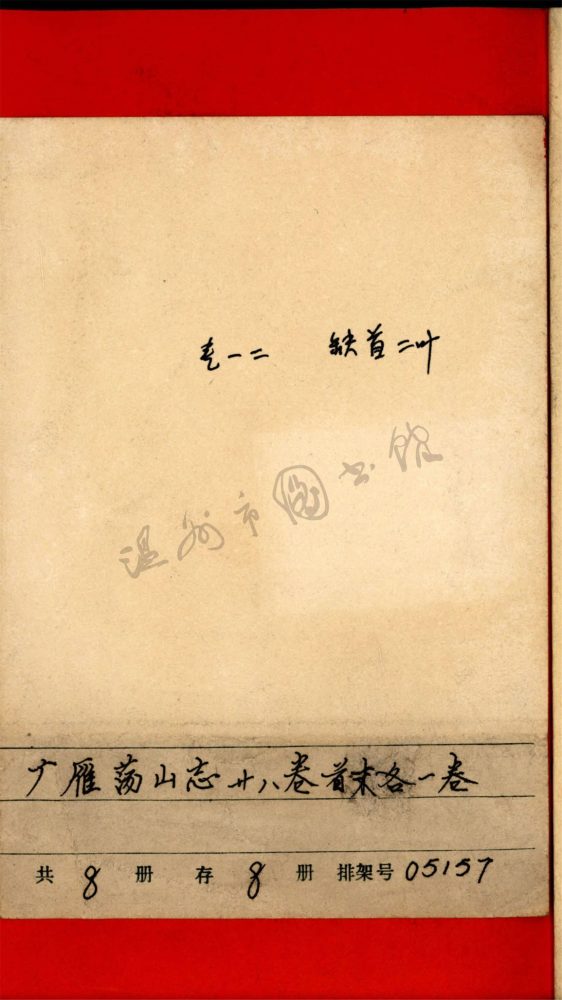 卷一二 缺首二叶
温州市图书馆
广雁荡山志廿八卷首末各一卷
共 8 册 存 8 册 排架号 05157